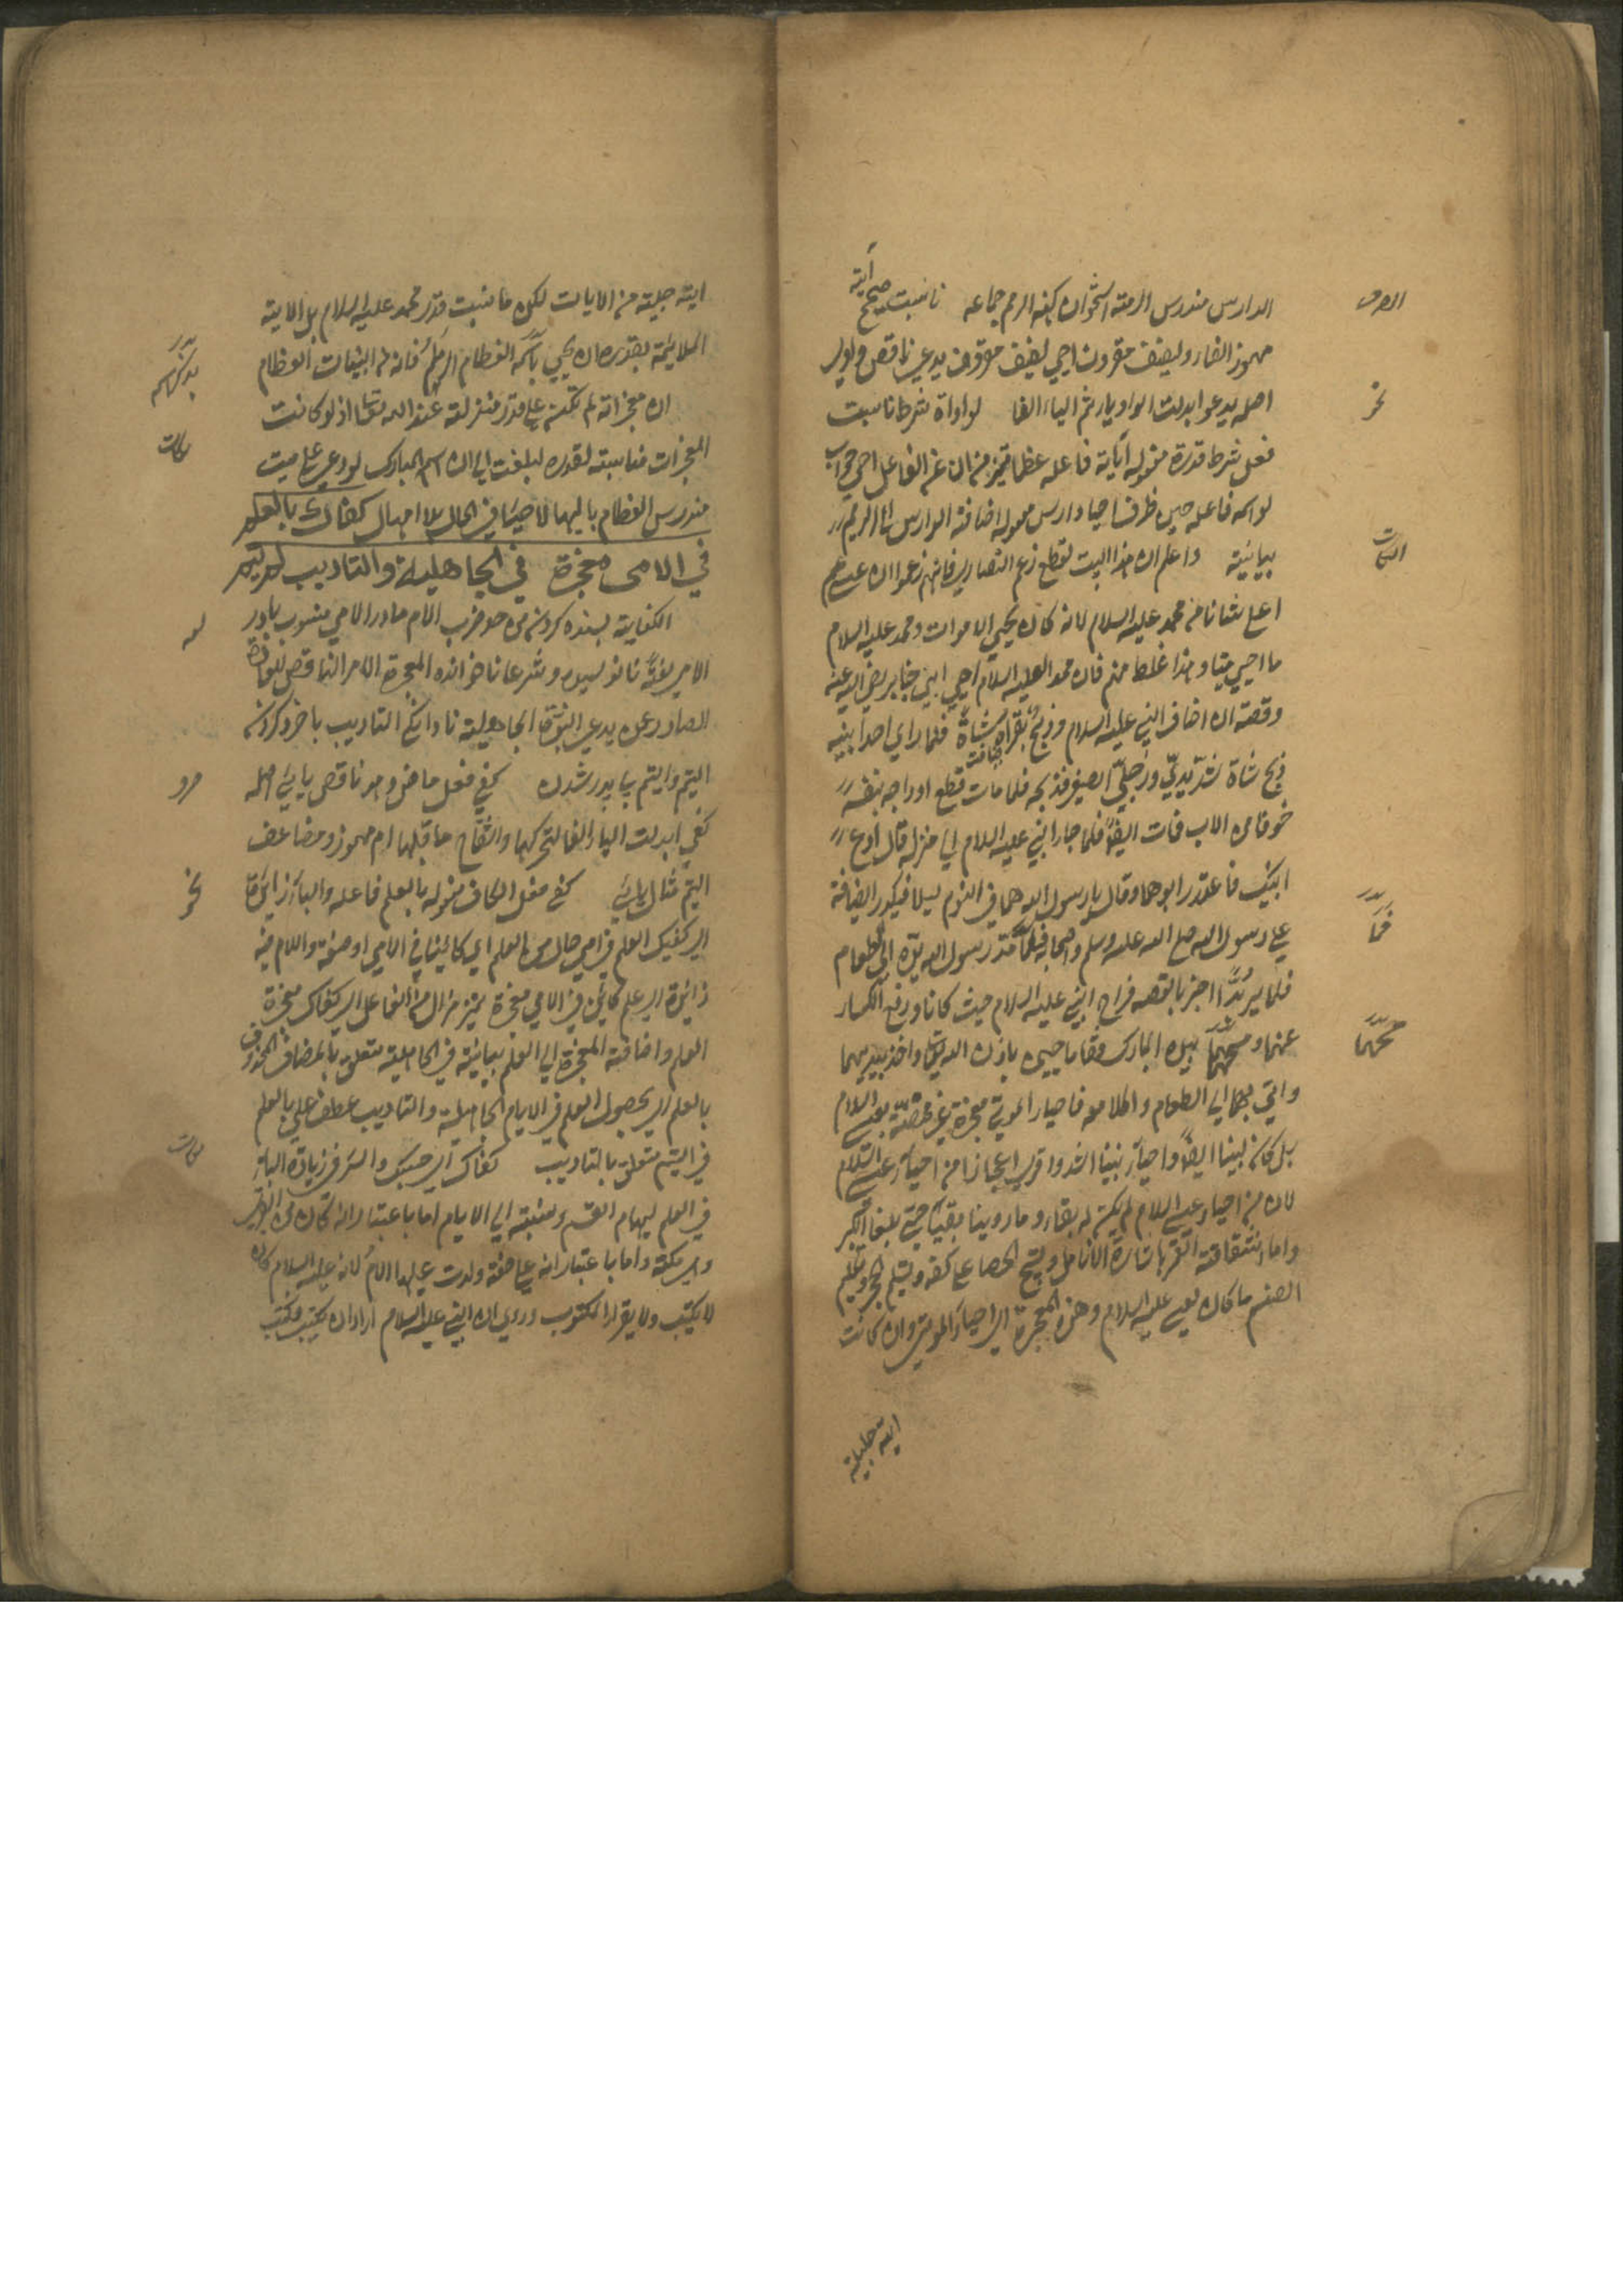 الدارس مندرس الرمة استخوان كهنه الرمم جماعه ناسبت صحيح آية
مهموز الفاء ولفيف مقرون احيي لفيف مقرون يدعي ناقص واوي
اصله يدعو ابدلت الواو ياء ثم الياء الفا لو اداة شرط ناسبت
فعل شرط قدره مفعوله آياته فاعله عظما تميز من ال عن الفاعل احيي جواب
لو اسمه فاعله حين ظرف احيا دارس معموله اضافة الدارس الى الرمم
بيانية واعلم ان هذا البيت لقطع زعم النصارى فانهم زعموا ان عيسى
اعلى شانا من محمد عليه السلام لانه كان يحيي الاموات ومحمد عليه السلام
ما احيي ميتا وهذا غلط منهم فان محمدا عليه السلام احيي ابني جابر رضي الله عنه
وقصته ان اضاف النبي عليه السلام وذبح شاة فلما راي احد ابنيه
ذبح شاة شد يدي ورجلي الصغير فذبحه فلما مات قطع اوداجه بنفسه
خوفا من الاب فمات ايضا فلما جاء النبي عليه السلام الى منزله قال ادع
ابنيك فاعتذر ابوهما وقال يا رسول الله هما في النوم ليلا فيكدر الضيافة
على رسول الله صلى الله عليه وسلم واصحابه فلما مد رسول الله يده الى الطعام
فلما بد اخبر بالقصة فراح النبي عليه السلام حيث كانا ورفع الكساء
عنهما ومسحهما بيده المبارك فقاما حيين باذن الله تعالى واخذ بيديهما
واتى بهما الى الطعام واكلا معه فاحياء الموتى معجزة غير مختصة بعيسى السلام
بل كان لنبينا ايضا واحياء نبينا اشد واقوى اعجازا من احياء عيسى السلام
لان من احياه عيسى السلام لم يكن له بقاء وما روينا بقيا حتى بلغا الكبر
واما انشقاقة القمر باشارة الانامل وتسبيح الحصا على كفه وتسليم الحجر وتكليم
الصنم ما كان لعيسى عليه السلام وهذه المعجزة اي احياء الموتى وان كانت
اية جليلة
الصرف
نحو
النكات
فما
مسحهما
اية جليلة من الايات لكن ما ناسبت قدر محمد عليه السلام بل الاية
الملائمة بقدره ان يحيي باسمه العظام الرميم فانه
ان معجزاته لم تكن على قدر منزلته عند الله تعالى اذ لو كانت
المعجزات مناسبة لقدره لبلغت الى ان اسمه المبارك لو دعي على ميت
مندرس العظام باليها لاحيا في الحال بلا امهال كفاك بالعلم
في الامي معجزة في الجاهلية والتاديب في اليتم
الكفاية بسنده كردن من حد ضرب الام مادر الامي منسوب بمادر
الامي لغة نانويسيده وشرعا ناخوانده المعجزة الامر الناقض للعادة
الصادر عمن يدعي النبوة الجاهلية نادانگي التاديب باخرد كردن
اليتم واليتم بي پدر شدن كفي فعل ماض وهو ناقص يايي اصله
كفي ابدلت الياء الفا لتحركها وانفتاح ما قبلها ام مهموز ومضاعف
اليتم مثال يايي كفى فعل الكاف مفعوله بالعلم فاعله والباء زائدة
اي كفيك العلم في امي حال من العلم اي كائنا في الامي او صفة واللام فيه
زائدة اي علم كائن في الامي معجزة تميز من ال عن الفاعل اي كفاك معجزة
العلم واضافة المعجزة الى العلم بيانية في الجاهلية متعلق بالمضاف المحذوف
بالعلم اي بحصول العلم في الايام الجاهلية والتاديب عطف على بالعلم
في اليتم متعلق بالتاديب كفاك اي حسبك والسر في زيادة الباء
في العلم ونسبته الى الايام اما باعتبار انه كان من ام القرى
وهي مكة واما باعتبار انه على صفة ولدت عليها الام لانه عليه السلام كان
لا يكتب ولا يقرا المكتوب وروي ان النبي عليه السلام اراد ان يكتب مكتب
نكات
لغة
صرف
نحو
نكات